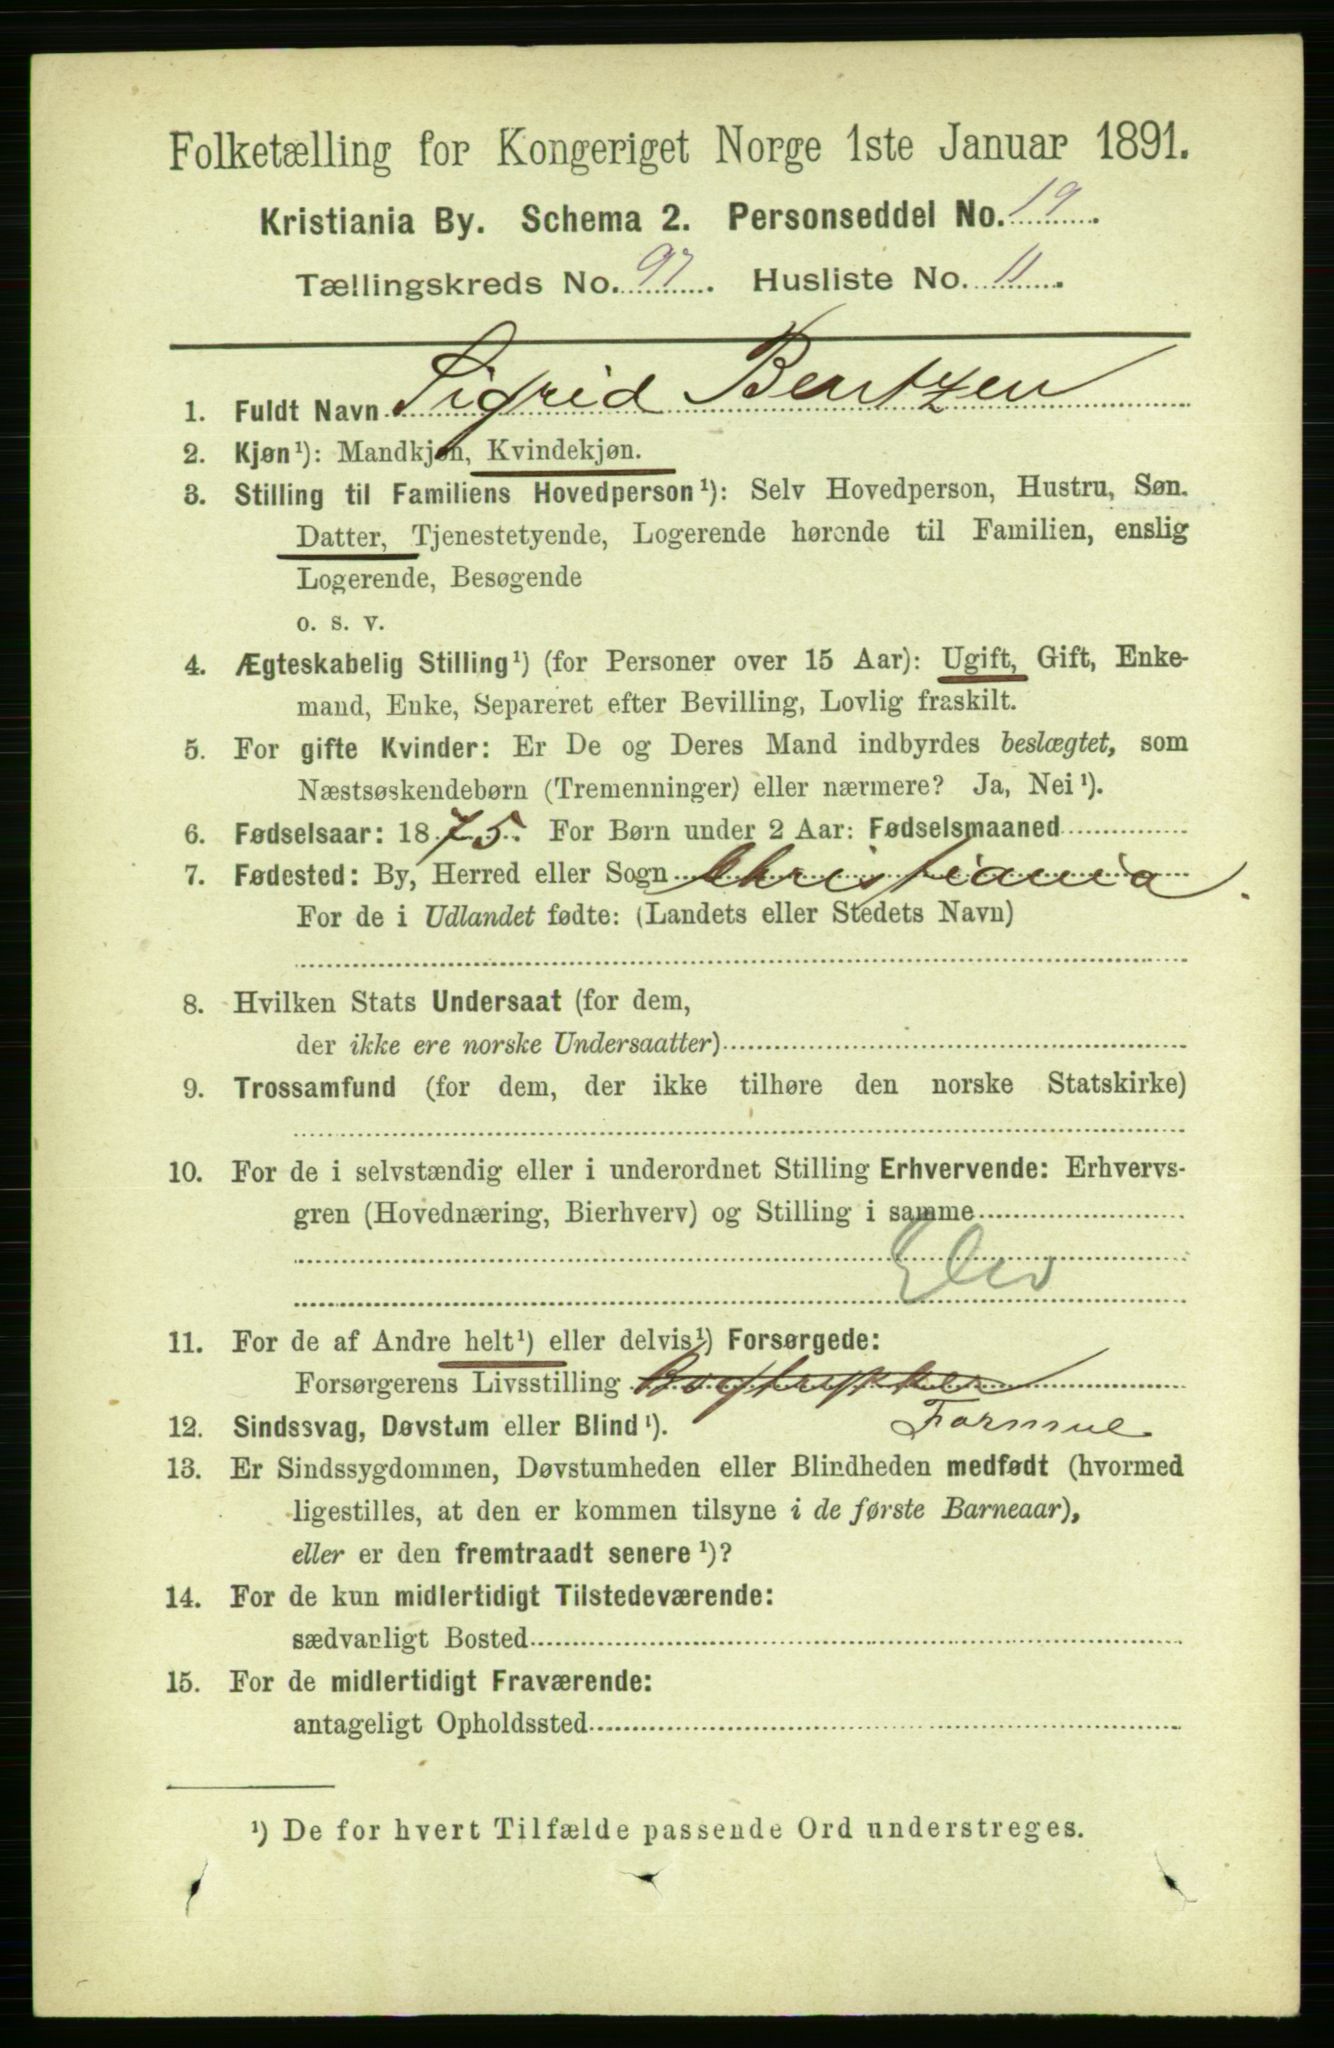 Folketælling for Kongeriget Norge 1ste Januar 1891.
Kristiania By. Schema 2. Personseddel No. 19.
Tællingskreds No. 97. Husliste No. 11.
1. Fuldt Navn Sigrid Bentzen
2. Kjøn¹): Mandkjøn, Kvindekjøn.
3. Stilling til Familiens Hovedperson¹): Selv Hovedperson, Hustru, Søn.
Datter, Tjenestetyende, Logerende hørende til Familien, enslig
Logerende, Besøgende
o. s. v.
4. Ægteskabelig Stilling¹) (for Personer over 15 Aar): Ugift, Gift, Enke-
mand, Enke, Separeret efter Bevilling, Lovlig fraskilt.
5. For gifte Kvinder: Er De og Deres Mand indbyrdes beslægtet, som
Næstsøskendebørn (Tremenninger) eller nærmere? Ja, Nei¹).
6. Fødselsaar: 1875. For Børn under 2 Aar: Fødselsmaaned
7. Fødested: By, Herred eller Sogn Christiania.
For de i Udlandet fødte: (Landets eller Stedets Navn)
8. Hvilken Stats Undersaat (for dem,
der ikke ere norske Undersaatter)
9. Trossamfund (for dem, der ikke tilhøre den norske Statskirke)
10. For de i selvstændig eller i underordnet Stilling Erhvervende: Erhvervs-
gren (Hovednæring, Bierhverv) og Stilling i samme
Elev
11. For de af Andre helt¹) eller delvis¹) Forsørgede:
Forsørgerens Livsstilling Bogtrykker
12. Sindssvag, Døvstum eller Blind¹). Formue
13. Er Sindssygdommen, Døvstumheden eller Blindheden medfødt (hvormed
ligestilles, at den er kommen tilsyne i de første Barneaar),
eller er den fremtraadt senere¹)?
14. For de kun midlertidigt Tilstedeværende:
sædvanligt Bosted
15. For de midlertidigt Fraværende:
antageligt Opholdssted
¹) De for hvert Tilfælde passende Ord understreges.